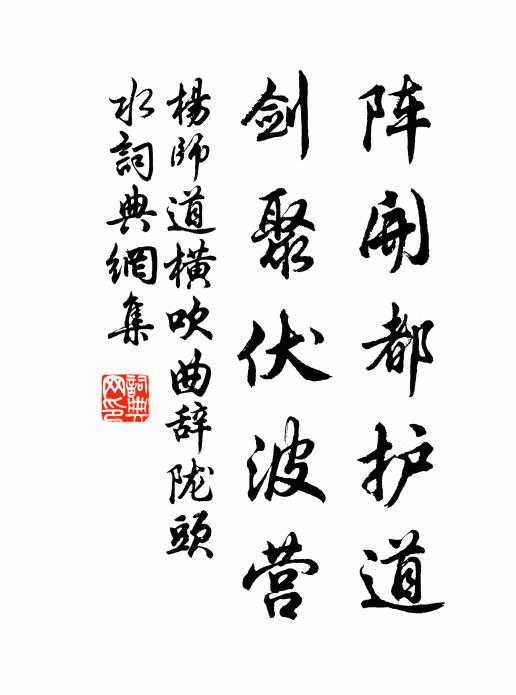 阵开都护道
剑聚伏波营
楊師道横吹曲辞陇頭
水詞典網集
詞典网印